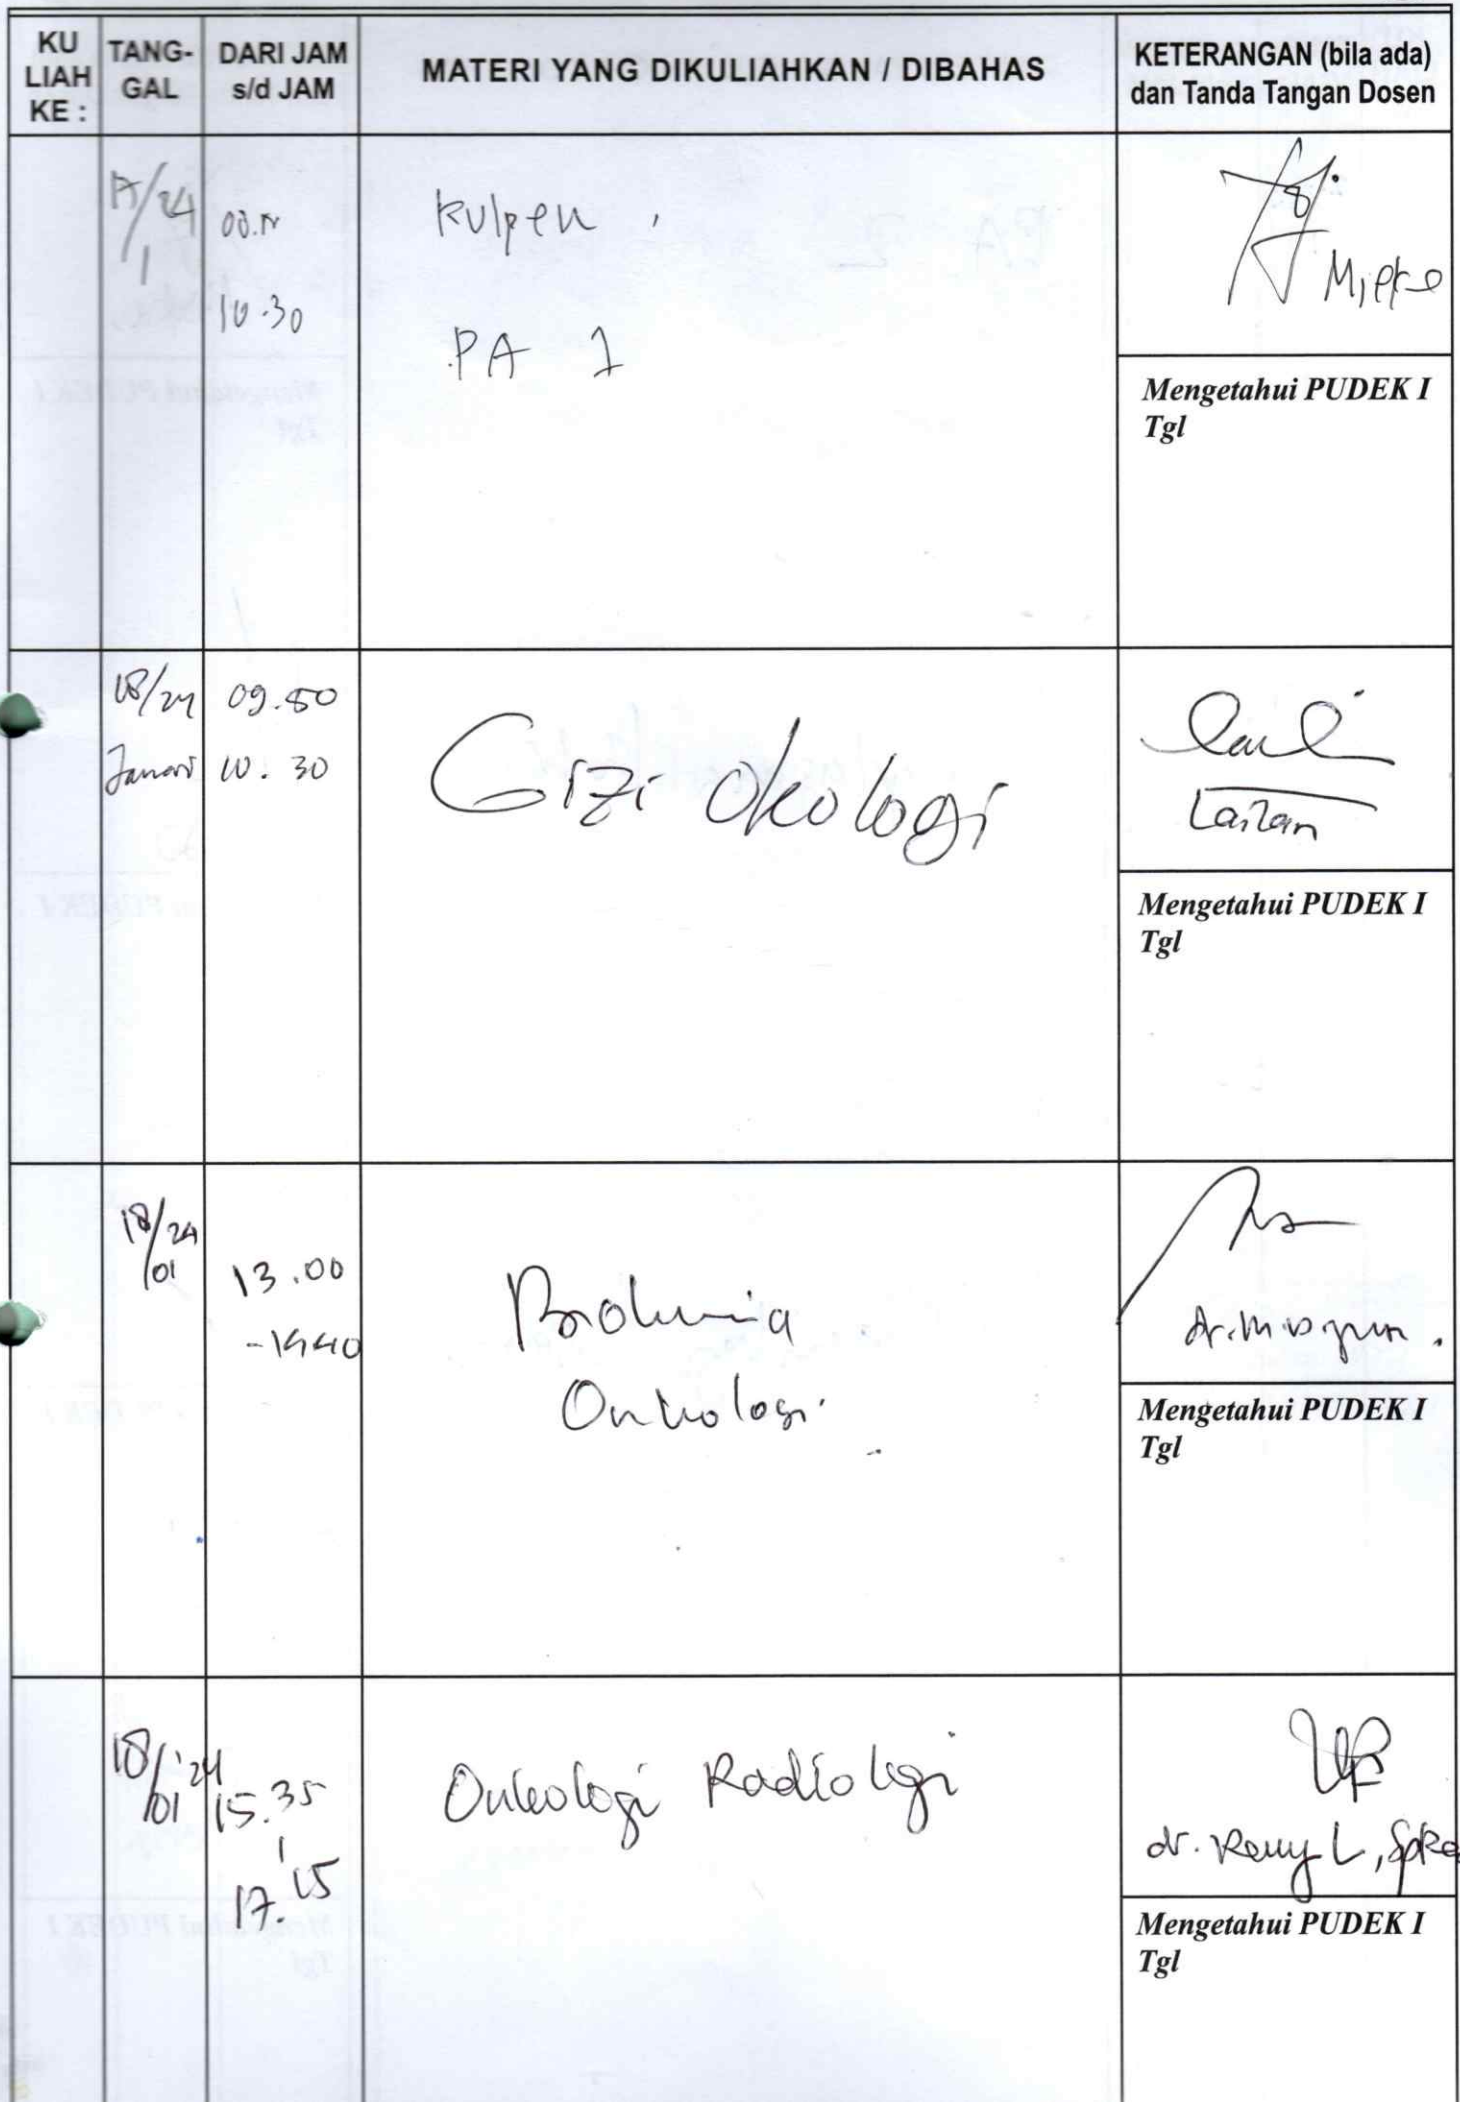 KU LIAH KE :
TANG- GAL
DARI JAM s/d JAM
MATERI YANG DIKULIAHKAN / DIBAHAS
KETERANGAN (bila ada) dan Tanda Tangan Dosen
17/24
1
10.30
Kulpen
PA 1
Mieke
Mengetahui PUDEK I
Tgl
18/24
Januari
09.50
10.30
Gizi Okologi
Lailan
Mengetahui PUDEK I
Tgl
18/24
/01
13.00
- 1440
Biokimia
Onkologi
Mengetahui PUDEK I
Tgl
18/'24
/01
15.35
17.15
Onkologi Radiologi
dr.
L,
Mengetahui PUDEK I
Tgl